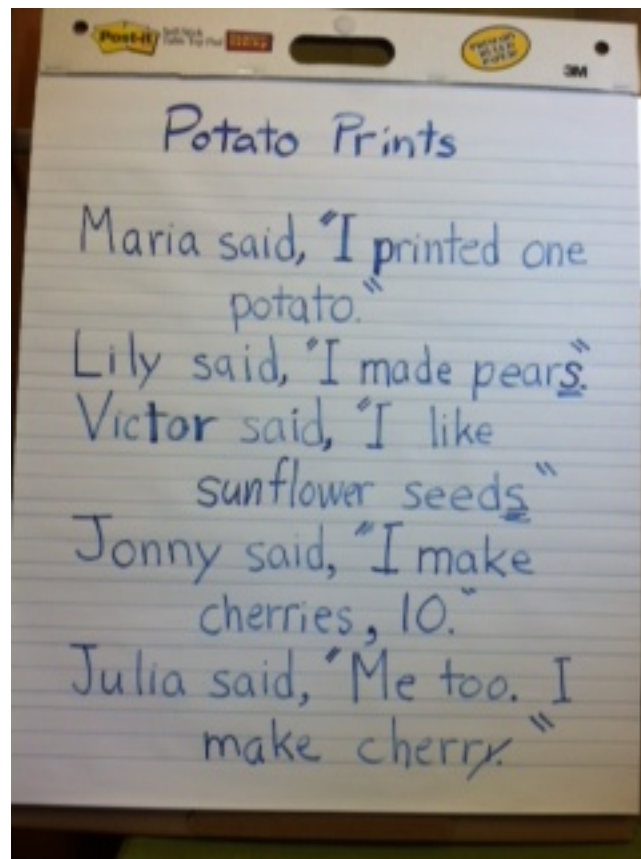 Post-it
3M
Potato Prints
Maria said, "I printed one
potato."
Lily said, "I made pears."
Victor said, "I like
sunflower seeds"
Jonny said, "I make
cherries, 10."
Julia said, "Me too. I
make cherry."